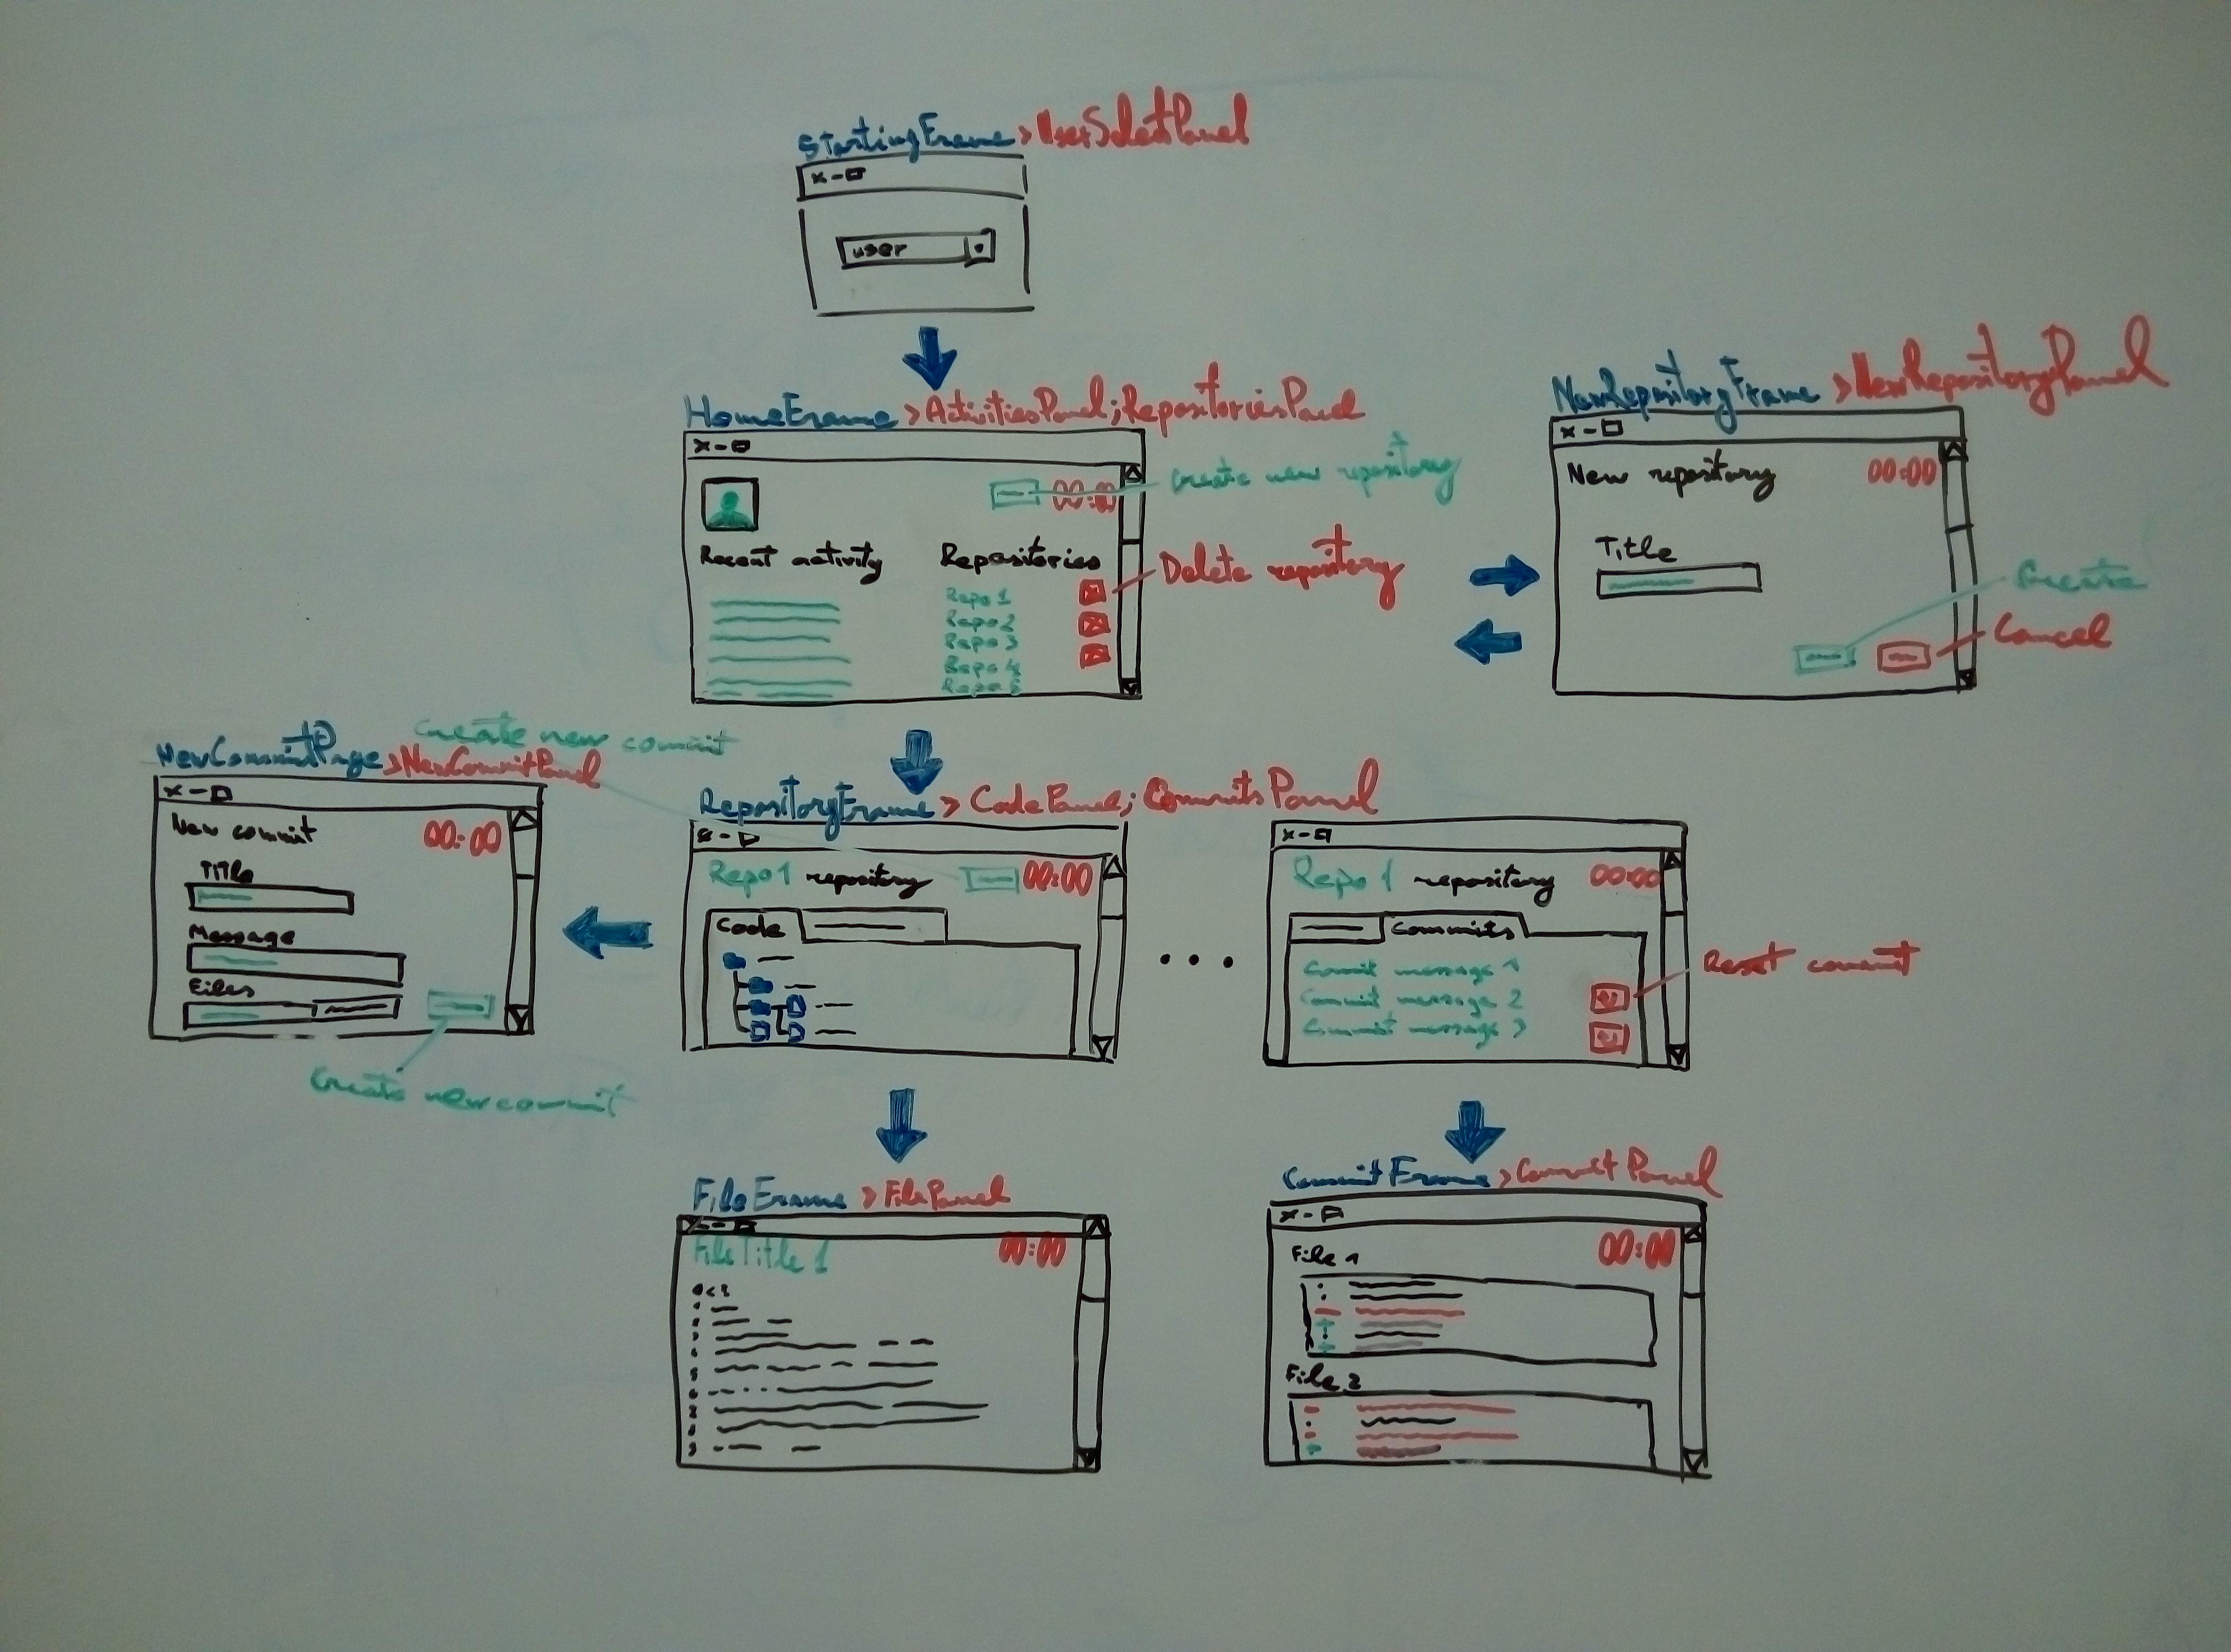 StartingFrame > UserSelectPanel
x - □
user
HomeFrame > ActivitiesPanel; RepositoriesPanel
x - □
00:00
Create new repository
Recent activity
Repositories
Delete repository
Repo 1
Repo 2
Repo 3
Repo 4
Repo 5
NewRepositoryFrame > NewRepositoryPanel
x - □
New repository
00:00
Title
Create
Cancel
Create new commit
NewCommitPage > NewCommitPanel
x - □
New commit
00:00
Title
Message
Files
Create new commit
RepositoryFrame > CodePanel; CommitsPanel
x - □
Repo 1 repository
00:00
Code
...
x - □
Repo 1 repository
00:00
Commits
Commit message 1
Commit message 2
Commit message 3
Reset commit
FileFrame > FilePanel
x - □
FileTitle 1
00:00
CommitFrame > CommitPanel
x - □
00:00
File 1
File 2